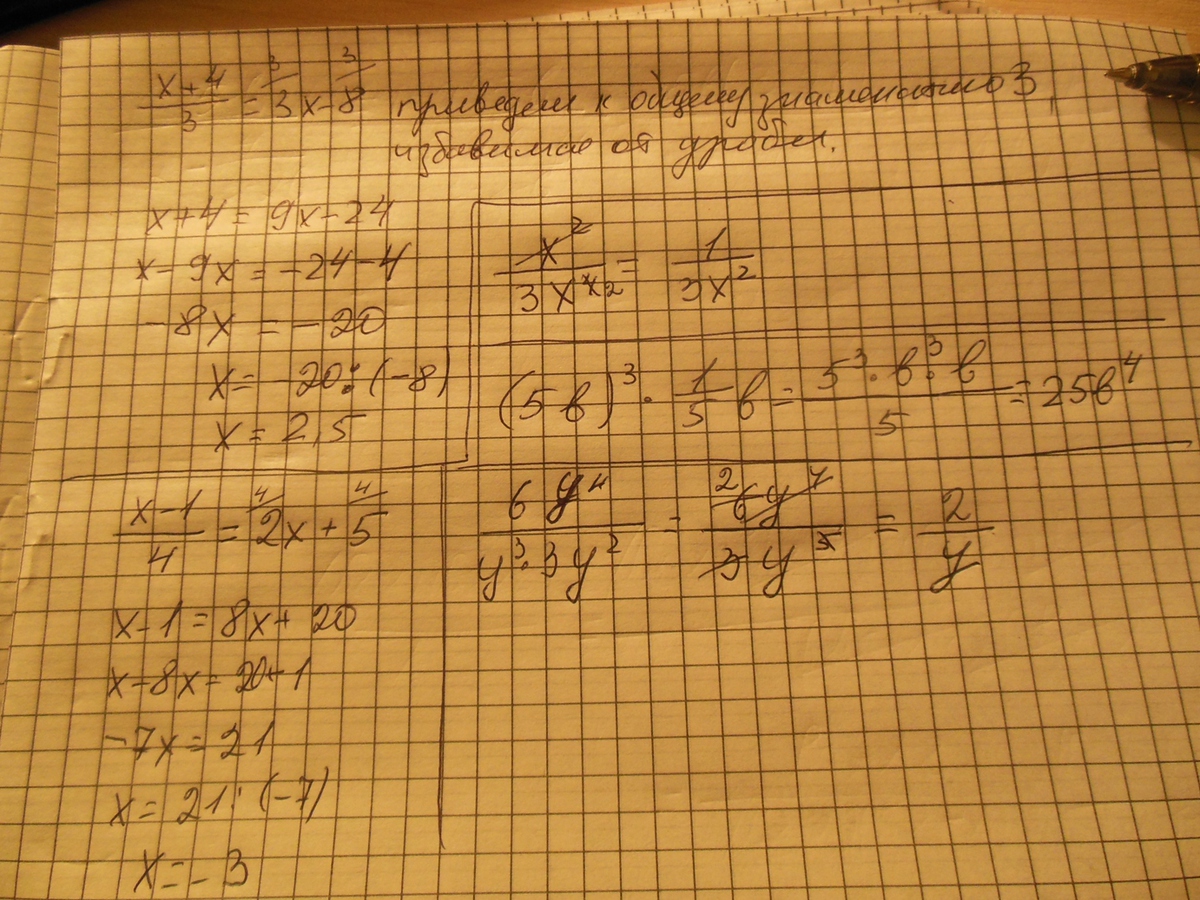 (x+4)/3 = 3x-8 приведем к общему знаменателю 3,
избавимся от дроби.
x+4=9x-24
x-9x=-24-4
-8x=-20
x=-20:(-8)
x=2,5
x²/(3x⁴) = 1/(3x²)
(5в)³ · 1/5 в = (5³·в³·в)/5 = 25в⁴
(x-1)/4 = 2x+5
x-1=8x+20
x-8x=20+1
-7x=21
x=21:(-7)
x=-3
6y⁴/(y³·3y²) = 6y⁴/(3y⁵) = 2/y